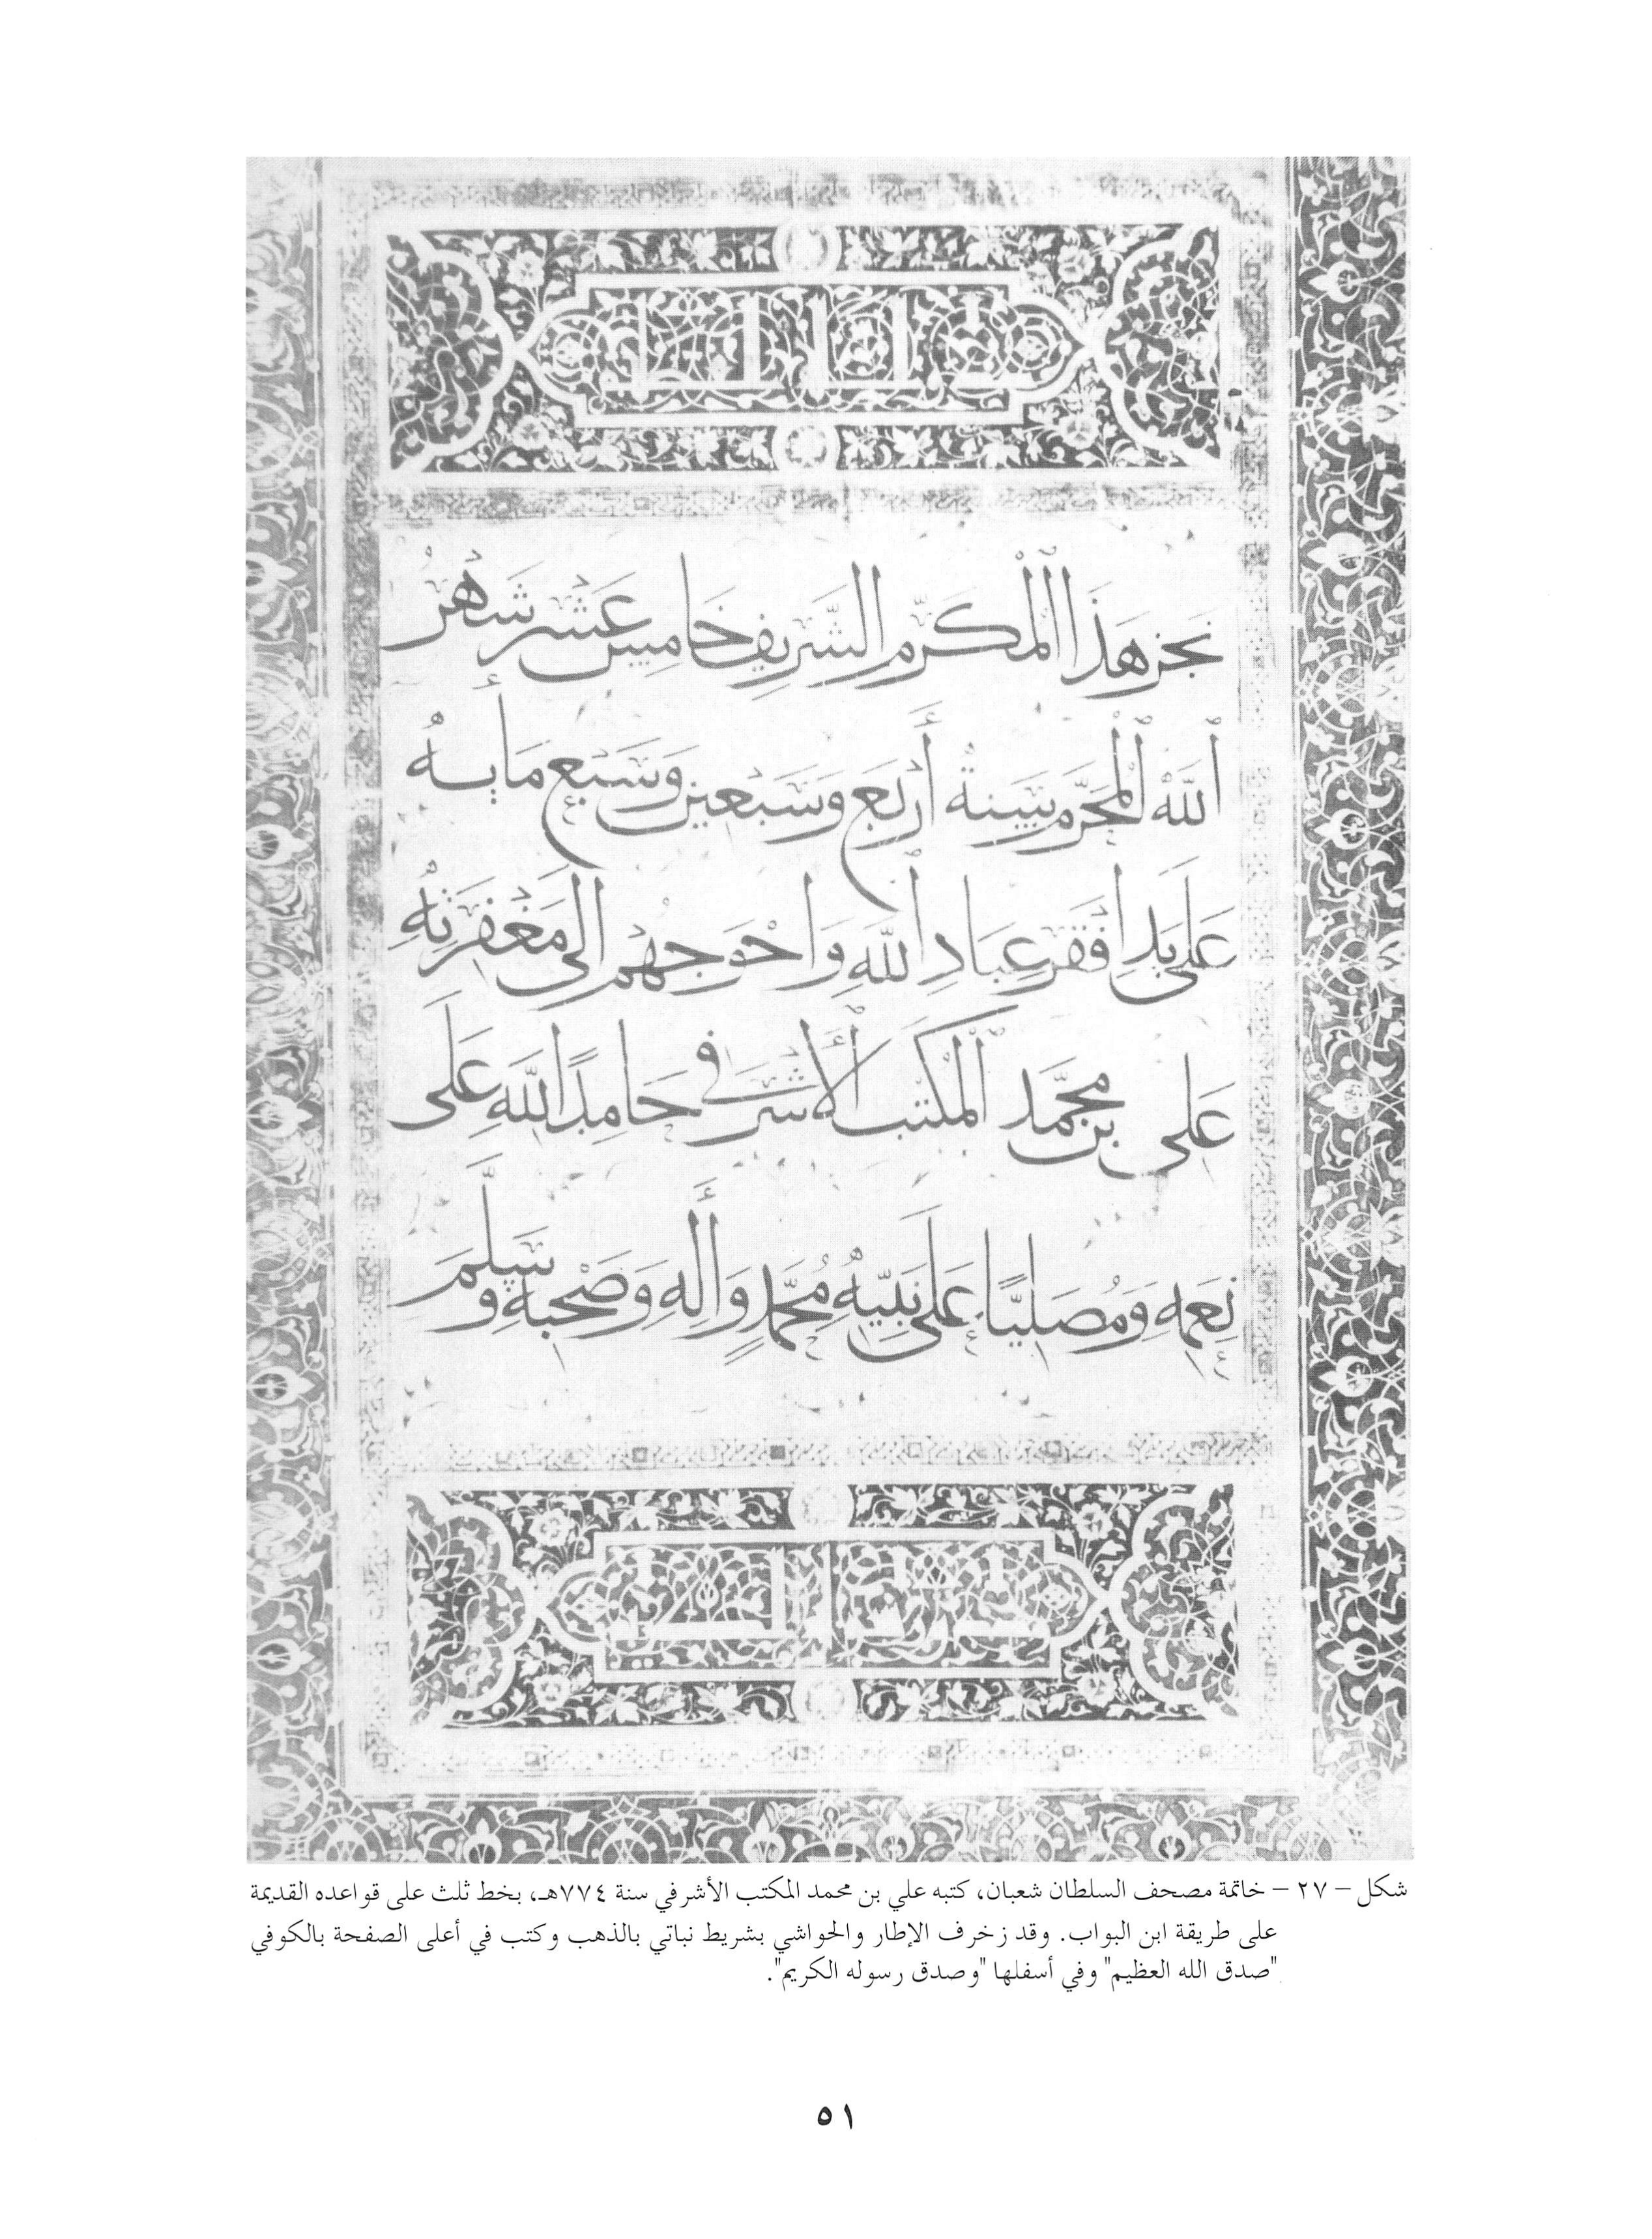 صدق الله العظيم
نجز هذا المكرم الشريف خامس عشر شهر
الله المحرم سنة أربع وسبعين وسبع مايه
على يد افقر عباد الله واحوجهم الى مغفرته
على بن محمد المكتب الأشرفى حامدا لله على
نعمه ومصليا على نبيه محمد وأله وصحبه وسلم
وصدق رسوله الكريم
شكل – ٢٧ – خاتمة مصحف السلطان شعبان، كتبه علي بن محمد المكتب الأشرفي سنة ٧٧٤هـ، بخط ثلث على قواعده القديمة
على طريقة ابن البواب. وقد زخرف الإطار والحواشي بشريط نباتي بالذهب وكتب في أعلى الصفحة بالكوفي
"صدق الله العظيم" وفي أسفلها "وصدق رسوله الكريم".
٥١